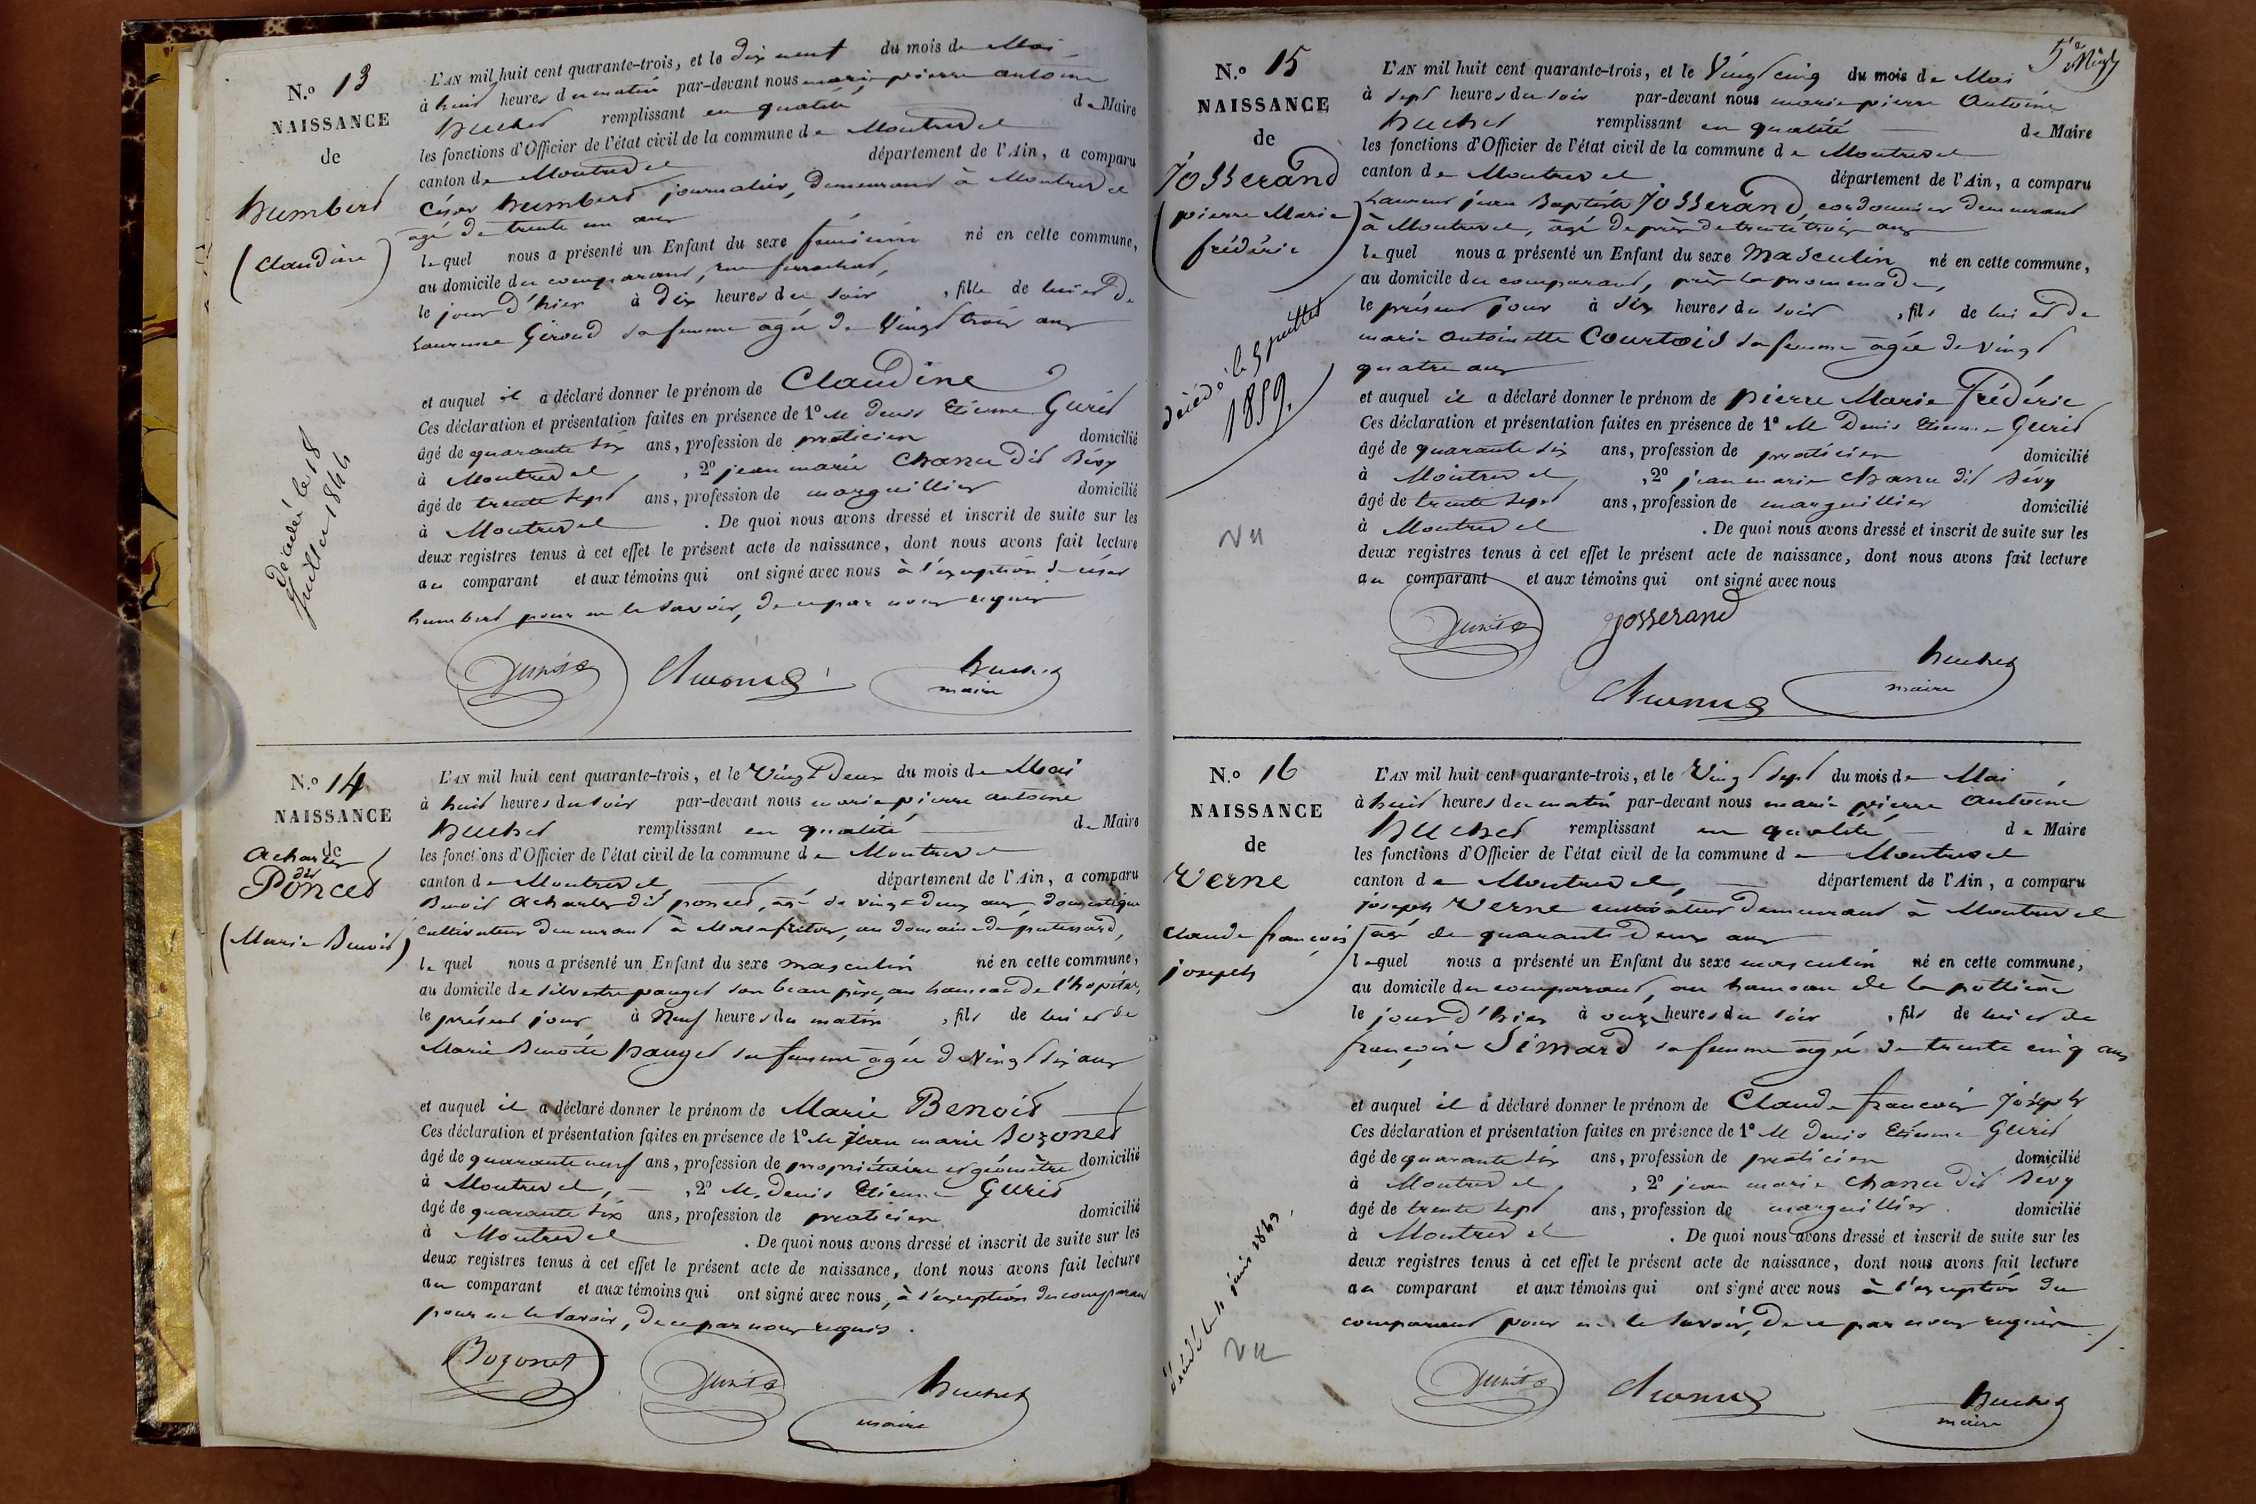 N.º 13
NAISSANCE
de
humbert
(Claudine)
Décédée le 18
Juillet 1844
L'AN mil huit cent quarante-trois, et le dix neuf du mois de Mai
à huit heures du matin par-devant nous marie pierre antoine
huchet remplissant en qualité de Maire
les fonctions d'Officier de l'état civil de la commune de Montrevel
canton de Montrevel département de l'Ain, a comparu
César humbert journalier, demeurant à Montrevel
agé de trente un ans
lequel nous a présenté un Enfant du sexe féminin né en cette commune,
au domicile du comparant, rue
le jour d'hier à dix heures du soir, fille de lui et de
Laurence Giroud sa femme agée de Vingt trois ans
et auquel il a déclaré donner le prénom de Claudine
Ces déclaration et présentation faites en présence de 1º M denis Etienne Gurit
âgé de quarante six ans, profession de praticien domicilié
à Montrevel, 2º jean marie Chanu dit Bévy
âgé de trente sept ans, profession de marguillier domicilié
à Montrevel. De quoi nous avons dressé et inscrit de suite sur les
deux registres tenus à cet effet le présent acte de naissance, dont nous avons fait lecture
au comparant et aux témoins qui ont signé avec nous à l'exception de césar
humbert pour ne le savoir, de ce par nous requis
Gurit
huchet
maire
N.º 14
NAISSANCE
de
Acharles
dit
Poncet
(Marie Benoit)
L'AN mil huit cent quarante-trois, et le Vingt deux du mois de Mai
à huit heures du soir par-devant nous marie pierre antoine
huchet remplissant en qualité de Maire
les fonctions d'Officier de l'état civil de la commune de Montrevel
canton de Montrevel département de l'Ain, a comparu
Benoit Acharles dit poncet, agé de vingt deux ans, domestique
cultivateur demeurant à Marsafritor, au domaine de
lequel nous a présenté un Enfant du sexe masculin né en cette commune,
au domicile de silvestre pauget son beau père, au hameau de l'hopital,
le présent jour à Neuf heures du matin, fils de lui et de
Marie Benoite pauget sa femme agée de Vingt six ans
et auquel il a déclaré donner le prénom de Marie Benoit
Ces déclaration et présentation faites en présence de 1º M Jean marie Bozonet
âgé de quarante neuf ans, profession de propriétaire et géomètre domicilié
à Montrevel, 2º M. Denis Etienne Gurit
âgé de quarante six ans, profession de praticien domicilié
à Montrevel. De quoi nous avons dressé et inscrit de suite sur les
deux registres tenus à cet effet le présent acte de naissance, dont nous avons fait lecture
au comparant et aux témoins qui ont signé avec nous, à l'exception du comparant
pour ne le savoir, de ce par nous requis.
Bozonet
Gurit
huchet
maire
N.º 15
NAISSANCE
de
Josserand
(pierre Marie
frédéric)
décédé le 5 juillet
1859.
Vu
L'AN mil huit cent quarante-trois, et le Vingt cinq du mois de Mai
à sept heures du soir par-devant nous marie pierre Antoine
huchet remplissant en qualité de Maire
les fonctions d'Officier de l'état civil de la commune de Montrevel
canton de Montrevel département de l'Ain, a comparu
Laurent jean Baptiste Josserand cordonnier demeurant
à Montrevel, âgé de près de trente trois ans
lequel nous a présenté un Enfant du sexe Masculin né en cette commune,
au domicile du comparant, près la promenade,
le présent jour à six heures du soir, fils de lui et de
marie Antoinette Courtois sa femme agée de Vingt
quatre ans
et auquel il a déclaré donner le prénom de pierre Marie frédéric
Ces déclaration et présentation faites en présence de 1º M Denis Etienne Gurit
âgé de quarante six ans, profession de praticien domicilié
à Montrevel, 2º jean marie Chanu dit Bévy
âgé de trente sept ans, profession de marguillier domicilié
à Montrevel. De quoi nous avons dressé et inscrit de suite sur les
deux registres tenus à cet effet le présent acte de naissance, dont nous avons fait lecture
au comparant et aux témoins qui ont signé avec nous
Gurit
Josserand
huchet
maire
N.º 16
NAISSANCE
de
Verne
Claude françois
joseph
Décédé le 4 juin 1849.
Vu
L'AN mil huit cent quarante-trois, et le Vingt sept du mois de Mai
à huit heures du matin par-devant nous marie pierre Antoine
huchet remplissant en qualité de Maire
les fonctions d'Officier de l'état civil de la commune de Montrevel
canton de Montrevel, département de l'Ain, a comparu
joseph Verne cultivateur demeurant à Montrevel
agé de quarante deux ans
lequel nous a présenté un Enfant du sexe masculin né en cette commune,
au domicile du comparant, au hameau de la
le jour d'hier à onze heures du soir, fils de lui et de
françoise Simard sa femme agée de trente cinq ans
et auquel il a déclaré donner le prénom de Claude françois Joseph
Ces déclaration et présentation faites en présence de 1º M denis Etienne Gurit
âgé de quarante six ans, profession de praticien domicilié
à Montrevel, 2º jean marie Chanu dit Bévy
âgé de trente sept ans, profession de marguillier. domicilié
à Montrevel. De quoi nous avons dressé et inscrit de suite sur les
deux registres tenus à cet effet le présent acte de naissance, dont nous avons fait lecture
au comparant et aux témoins qui ont signé avec nous à l'exception du
comparant pour ne le savoir, de ce par nous requis.
Gurit
huchet
maire